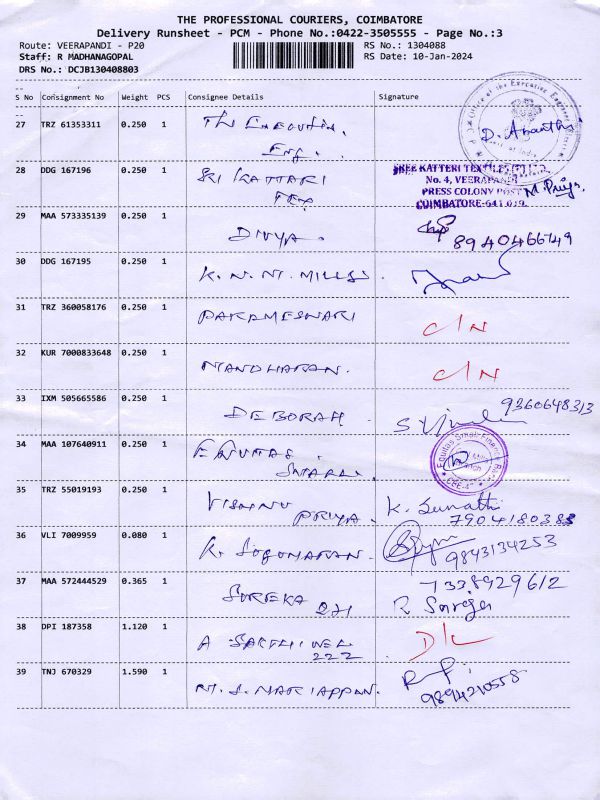 THE PROFESSIONAL COURIERS, COIMBATORE
Delivery Runsheet - PCM - Phone No.:0422-3505555 - Page No.:3
Route: VEERAPANDI - P20
RS No.: 1304088
Staff: R MADHANAGOPAL
RS Date: 10-Jan-2024
DRS No.: DCJB130408803
S No Consignment No Weight PCS Consignee Details Signature
27 TRZ 61353311 0.250 1 The Executive
Eng.
Office of the Executive Engineer
D. Ananthi
28 DDG 167196 0.250 1 SRI KATTARI
TEX
SREE KATTERI TEXTILES
No. 4, VEERAPANDI
PRESS COLONY POST
COIMBATORE-641 019.
M. Priya
29 MAA 573335139 0.250 1 DIVYA.
8940466749
30 DDG 167195 0.250 1 K. N. NT. MILLS.
31 TRZ 360058176 0.250 1 PARAMESWARI
C/N
32 KUR 7000833648 0.250 1 NANDHARAN.
C/N
33 IXM 505665586 0.250 1 DEBORAH.
9360648313
34 MAA 107640911 0.250 1 EQUITAS.
SMALL.
Equitas Small Finance Bank
35 TRZ 55019193 0.250 1 VISHNU
PRIYA.
K. Sumathi
7904180388
36 VLI 7009959 0.080 1
9843134253
37 MAA 572444529 0.365 1 SUREKA 271
7338929612
R Saroja
38 DPI 187358 1.120 1 A SAKTHIVEL
222
D/L
39 TNJ 670329 1.590 1 M. S. MARIAPPAN.
9894210558